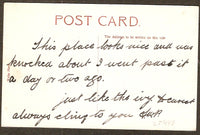 POST CARD.
The address to be written on this side
This place looks nice and was
knocked about 3 went past it
a day or two ago.
just like the ivy
always cling to you